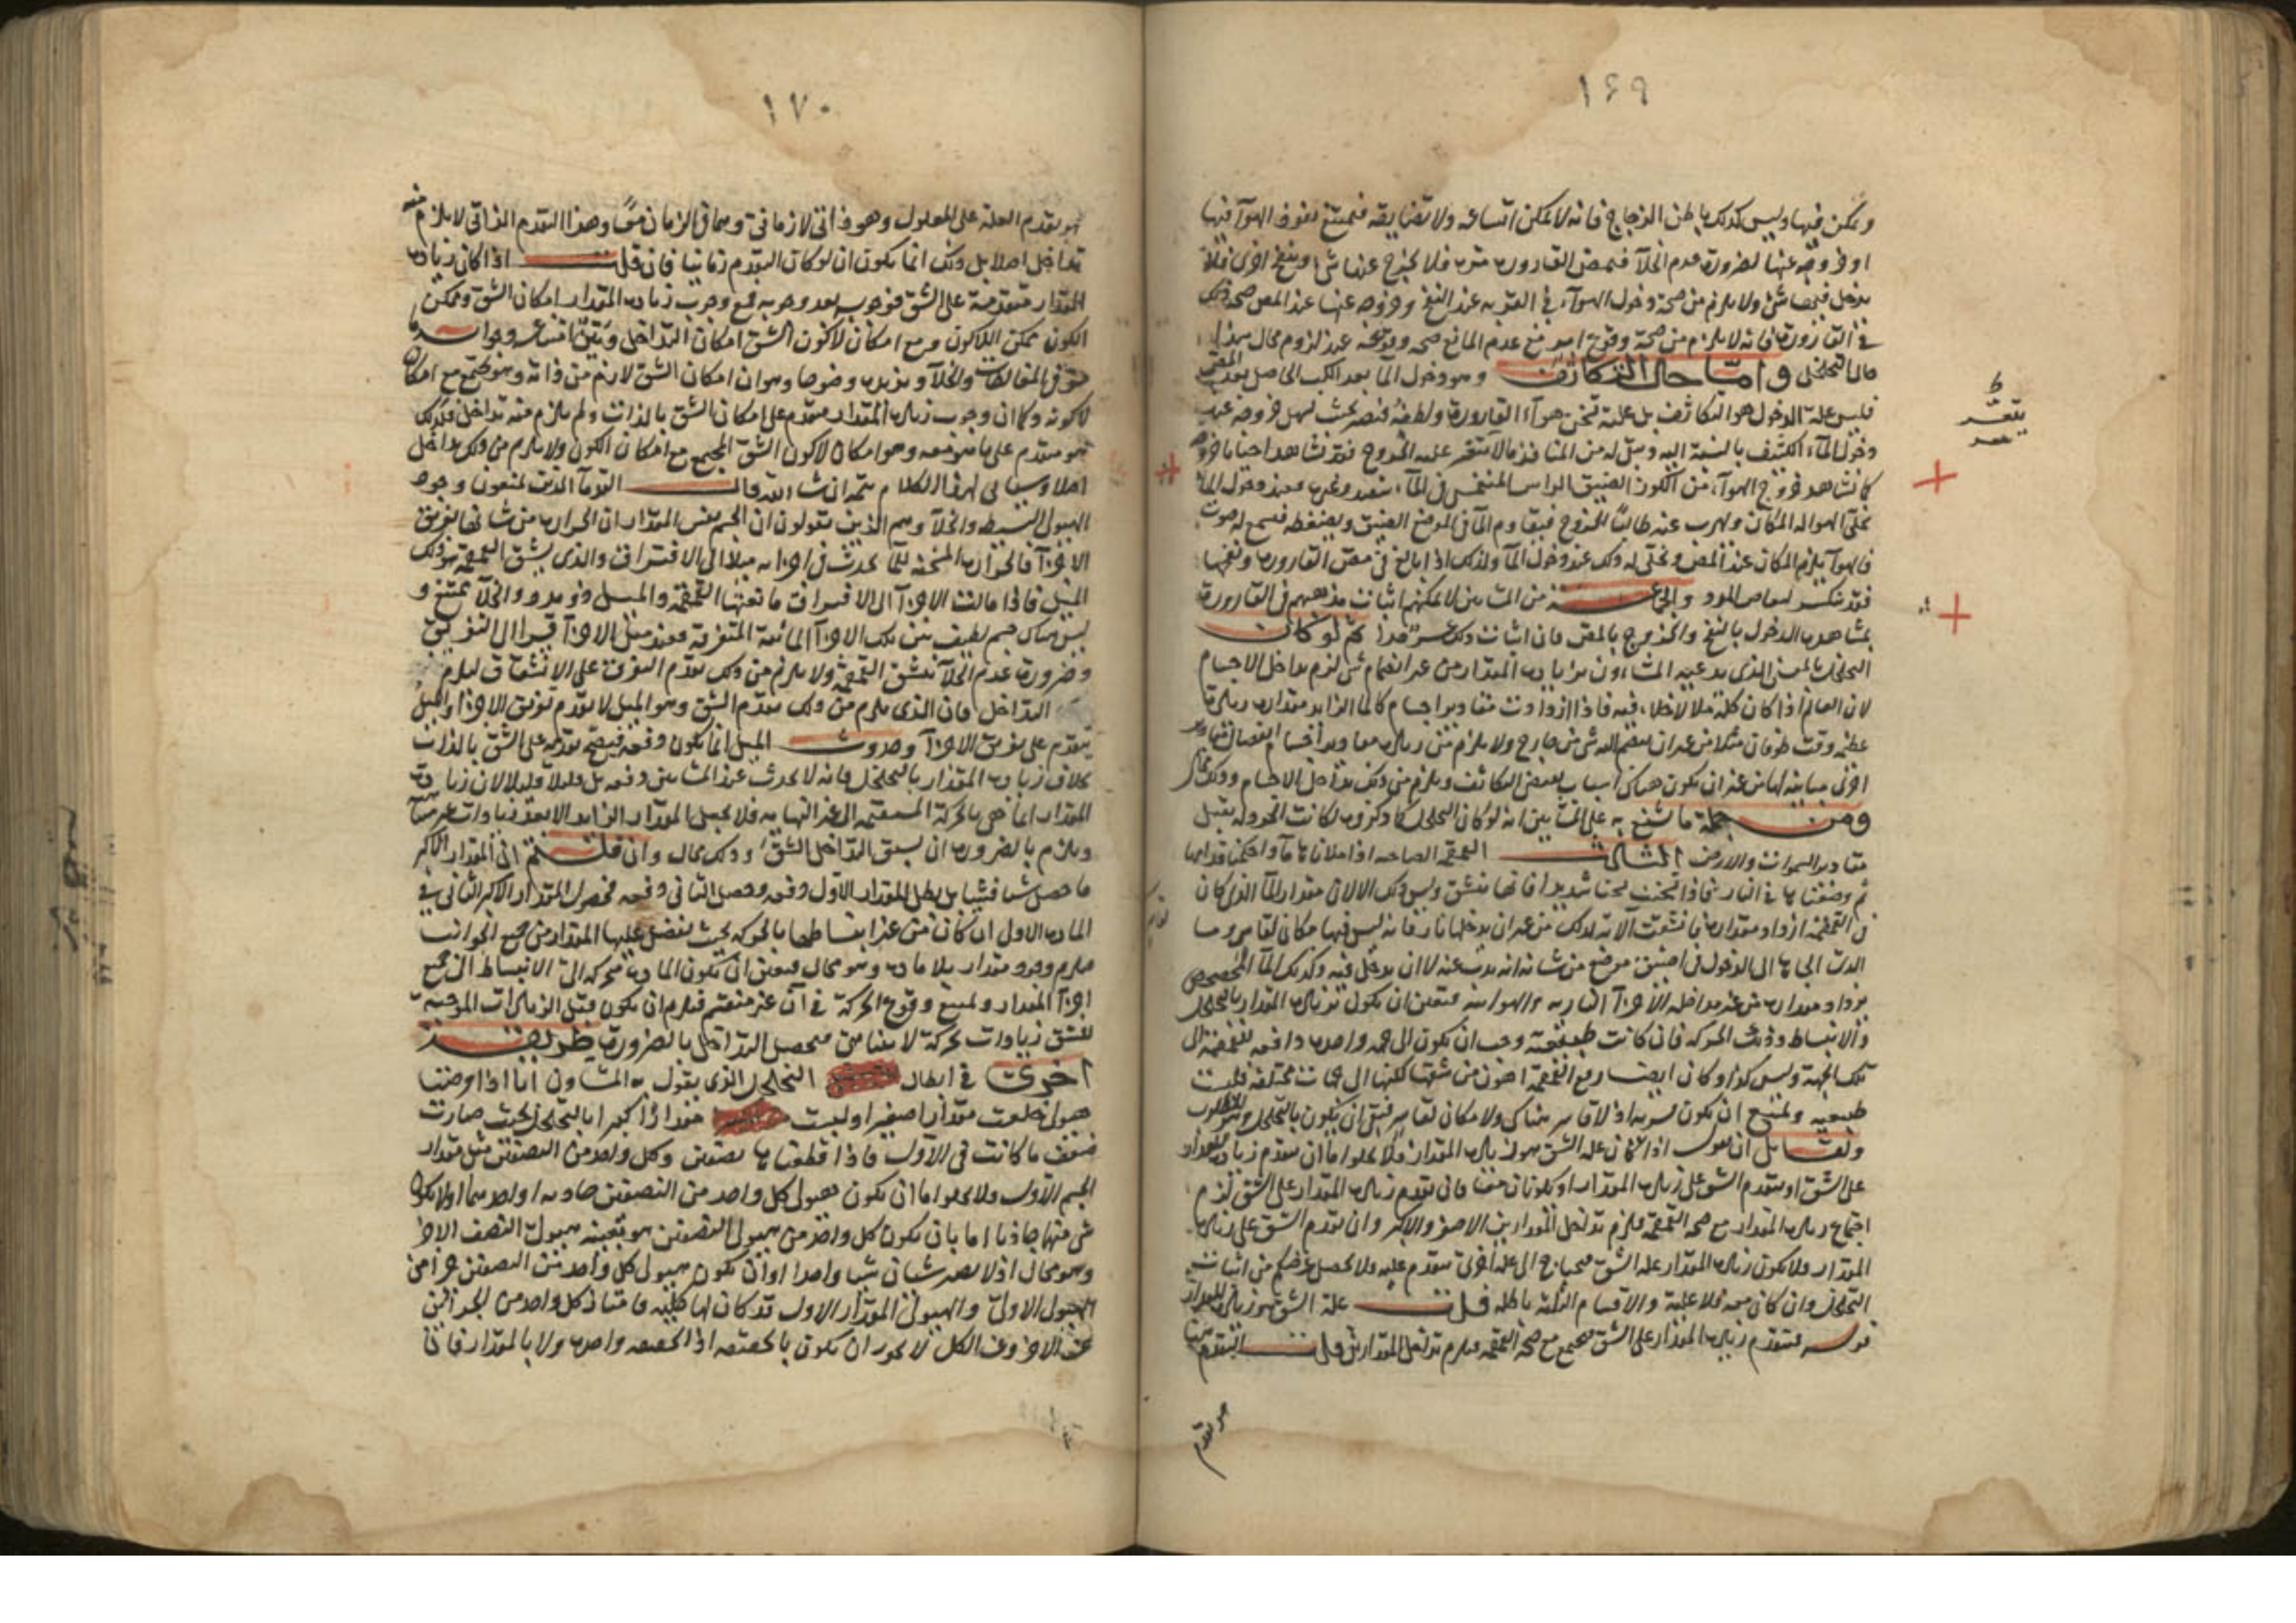 ١٦٩
ويمكن فيها وليس كذلك باطن الزجاج فانه لا يمكن اتساعه ولا تضايقه فيمتنع نفوذ الهوآء فيها
او خروجه عنها لضرورة عدم الخلآ فيمص القارورة مرة فلا يخرج عنها شئ وينفخ اخرى فلا
يدخل فيها شئ ولا يلزم من صحة دخول الهوآء في القربة عند النفخ وخروجه عنها عند المص صحة ذلك
في القارورة فانه لا يلزم من صحة وقوع امر مع عدم المانع صحة وقوعه عند لزوم محال هذا
حال التخلخل واما حال التكاثف وهو دخول المآ بعد الكب الحاصل بعد المص
فليس علة الدخول هو التكاثف بل علته تخن هوآء القارورة ولطفه فيصير بحيث يسهل خروجه عند
دخول المآء الكثيف بالنسبة اليه ومثل له من المنافذ ما لا يتعسر عليه الخروج فقد نشاهد احيانا خروجه
كما نشاهد خروج الهوآء من الكوز الضيق الراس المنغمس في المآء
يخلي الهوا له المكان ويهرب عنه طالبا للخروج فيقاوم المآ في الموضع الضيق ويضغطه فيسمع له صوت
فالهوآ يلزم المكان عند المص ويخلي له ذلك عند دخول المآ ولذلك اذا بالغ في مص القارورة ونفخها
فقد تنكسر والجماعة من المشائين لا يمكنهم اثبات مذهبهم في القارورة
بمشاهدة الدخول بالنفخ والخروج بالمص فان اثبات ذلك عسر جدا ثم لو كان
التخلخل بالمعنى الذي يدعيه المشاءون من ازدياد المقدار من غير انضمام شئ لزم تداخل الاجسام
لان العالم اذا كان كله ملا لا خلاء فيه فاذا ازدادت مقادير اجسام كالما الزايد مقداره زيادة
عظيمة وقت طوفان مثلا من غير ان ينضم اليه شئ من خارج ولا يلزم من زيادة مقادير اجسام نقصان مقادير
اخرى مباينة لها من غير ان يكون هناك اسباب لبعض التكاثف ويلزم من ذلك تداخل الاجسام وذلك محال
ومن جملة ما شنع به على المشائين انه لو كان التخلخل كما ذكروه لكانت الخردلة يقبل
مقادير السموات والارض الثالث القمقمة الصياحة اذا ملاناها مآ واحكمنا فدامها
ثم وضعناها في النار فاذا تسخنت تسخنا شديدا فانها تنشق وليس ذلك الا لان مقدار المآ الذي كان
في القمقمة ازداد مقداره فانشقت الآنية لذلك من غير ان يدخلها نار فانه ليس فيها مكان
يزداد مقداره من غير مداخلة الاجزآ النارية والهوائية فتعين ان يكون لزيادة المقدار بالتخلخل
والانبساط وذلك الحركة فان كانت طبيعية وجب ان يكون الى جهة واحدة دافعة للقمقمة الى
تلك الجهة وليس كذا وكان ايضا رفع القمقمة اهون من شقها لكنها الى جهات مختلفة فليست
طبيعية ويمتنع ان يكون قسرية اذ لا قاسر هناك ولا مكان لقاسر فبقي ان يكون بالتخلخل وهو المطلوب
ولقائل ان يقول اذا كان علة الشق هو زيادة المقدار فلا يخلو اما ان يتقدم زيادة المقدار
على الشق او يتقدم الشق على زيادة المقدار او يكونان معا فان تقدم زيادة المقدار على الشق لزم
اجتماع زيادة المقدار مع صحة القمقمة فيلزم تداخل المقدارين الاصغر والاكبر وان تقدم الشق على زيادة
المقدار فلا يكون زيادة المقدار علة الشق فيحتاج الى علة اخرى متقدمة عليه ولا يحصل غرضكم من اثبات
التخلخل وان كان معه فلا علية والاقسام الثلثة باطلة قلت علة الشق هو زيادة المقدار
قوله فيتقدم زيادة المقدار على الشق فيجتمع مع صحة القمقمة فيلزم تداخل المقدارين قلت التقدم
هو تقدم
يتعسر
١٧٠
هو تقدم العلة على المعلول وهو ذاتي لا زماني وهما في الزمان معًا وهذا التقدم الذاتي لا يلزم منه
تداخل اصلا بل ذلك انما يكون ان لو كان التقدم زمانيا فان قلت اذا كان زيادة
المقدار متقدمة على الشق فوجوبه بعد وجوبه فمع وجوب زيادة المقدار امكان الشق وممكن
الكون ممكن اللاكون ومع امكان لاكون الشق امكان التداخل وتبين امتناعه وجوابه
سبق في المغالطات والخلآ ونزيده وضوحا وهو ان امكان الشق لازم من ذاته وهو يجتمع مع امكان
لاكونه وكما ان وجوب زيادة المقدار متقدم على امكان الشق بالذات ولم يلزم منه تداخل فكذلك
هو متقدم على ما هو معه وهو امكان لاكون الشق المجتمع مع امكان الكون ولا يلزم من ذلك تداخل
اصلا وسياتى لهذا الكلام تتمة ان شاء الله قال القدمآ الذين يمنعون وجود
الهيولى البسيطة والخلآ وهم الذين يقولون ان الجسم نفس المقدار ان الحرارة من شانها تفريق
الاجزآ فالحرارة المسخنة للمآ يحدث في اجزائه ميلا الى الافتراق والذي يشق القمقمة هو ذلك
الميل فاذا مالت الاجزآ الى الافتراق مانعتها القمقمة والميل ذو مدد والخلآ ممتنع و
ليس هناك جسم لطيف بين تلك الاجزآ المائعة المتفرقة فعند ميل الاجزآ قسرا الى التفريق
وضرورة عدم الخلآ تنشق القمقمة ولا يلزم من ذلك تقدم التفرق على الانشقاق ليلزم
التداخل فان الذي يلزم من ذلك تقدم الشق وهو الميل لا تقدم تفرق الاجزآ والميل
يتقدم على تفريق الاجزآ وحدوث الميل انما يكون دفعة فيصح تقدمه على الشق بالذات
بخلاف زيادة المقدار بالتخلخل فانه لا يحدث عند المشائين دفعة بل قليلا قليلا لان زيادة
المقدار انما هي بالحركة المنقسمة الى غير النهاية فلا يحصل المقدار الزايد الا بعد زيادات غير متناهية
ويلزم بالضرورة ان يسبق التداخل الشق وذلك محال وان قلتم ان المقدار الاكبر
ما حصل شيئا فشيئا بل بطل المقدار الاول دفعة وحصل الثاني دفعة فحصول المقدار الاكبر الثاني في
المادة الاول ان كان من غير انبساطها بالحركة بحيث يفضل عليها المقدار من جميع الجوانب
فيلزم وجود مقدار بلا مادة وهو محال فيتعين ان يكون المادة متحركة الى الانبساط الى جميع
اجزآ المقدار ويمتنع وقوع الحركة في آن غير منقسم فيلزم ان يكون قبل الزيادات الموجبة
للشق زيادات بحركة لا يتناهى فيحصل التداخل بالضرورة طريقة
اخرى في ابطال التخلخل الذي يقول به المشاؤن انا اذا فرضنا
هيولى خلعت مقدارا صغيرا ولبست مقدارا كبيرا بالتخلخل بحيث صارت
ضعف ما كانت في الاول فاذا قطعناها بنصفين وكل واحد من النصفين مثل مقدار
الجسم الاول ولا يخلو اما ان يكون هيولى كل واحد من النصفين حادثة او احدهما او لا يكون
شئ منها حادثا اما بان يكون كل واحد من هيولى النصفين هو بعينه هيولى النصف الاخر
وهو محال اذ لا يصير شيئان شيئا واحدا او ان يكون هيولى كل واحد من النصفين جزآ من
الهيولى الاولى والهيولى المقدار الاول قد كان لها كلية فامتياز كل واحد من الجزئين
عن الاخر وعن الكل لا يجوز ان يكون بالحقيقة اذ الحقيقة واحدة ولا بالمقدار فان